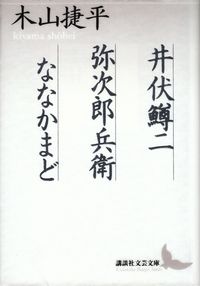 木山捷平
kiyama shōhei
井伏鱒二
弥次郎兵衛
ななかまど
講談社文芸文庫